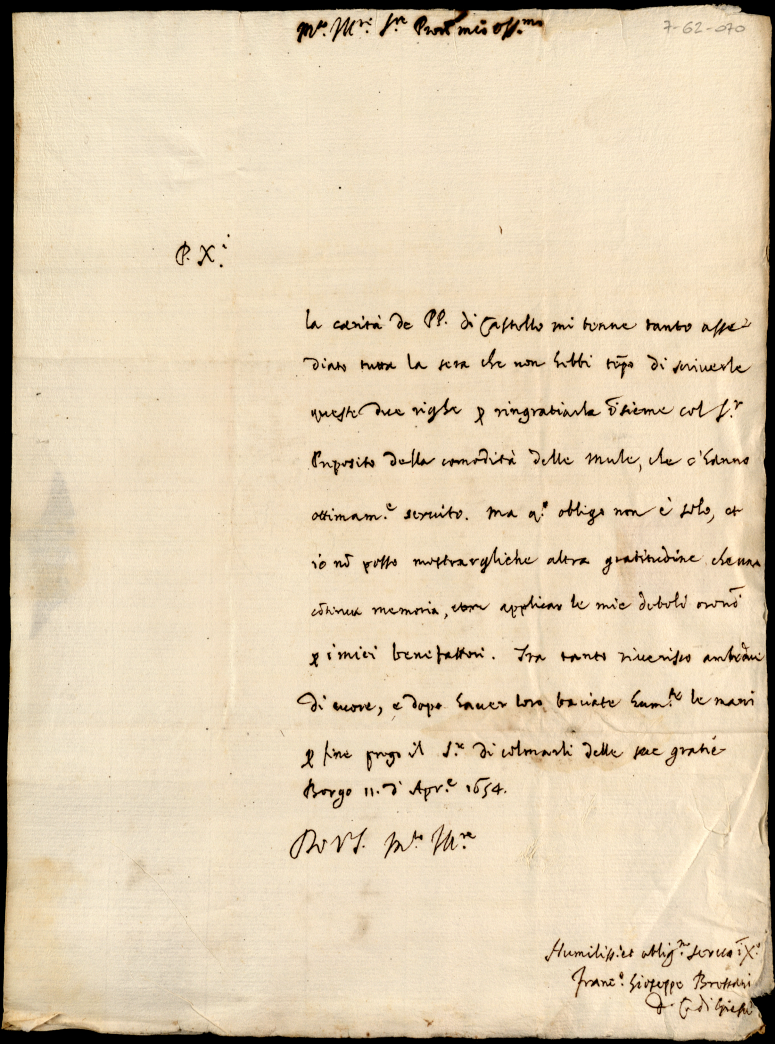 m.to Ill.re S.re Pron mio oss.mo
7-62-070
P. X.i
la carità de PP. di Castello mi tenne tanto asse=
diato tutta la sera che non hebbi tēpo di scriuerle
queste due righe p ringratiarla īsieme col S.r
Preposito della comodità delle mule, che c'hanno
ottimam.e seruito. ma q.o obligo non è solo, et
io nō posso mostrargliche altra gratitudine che una
cōtinua memoria, applicar le mie deboli oronī
p i miei benefattori. Tra tanto riuerisco ambidue
di cuore, e dopo hauer loro baciate hum.te le mani
p fine prego il S.re di colmarli delle sue gratie
Borgo 11. d' Apr.e 1654.
Di V.S. m.to Ill.re
Humiliss.o et oblig.mo seruo ī X.o
Franc.o Gioseppe Bressani
d. C. di Giesù